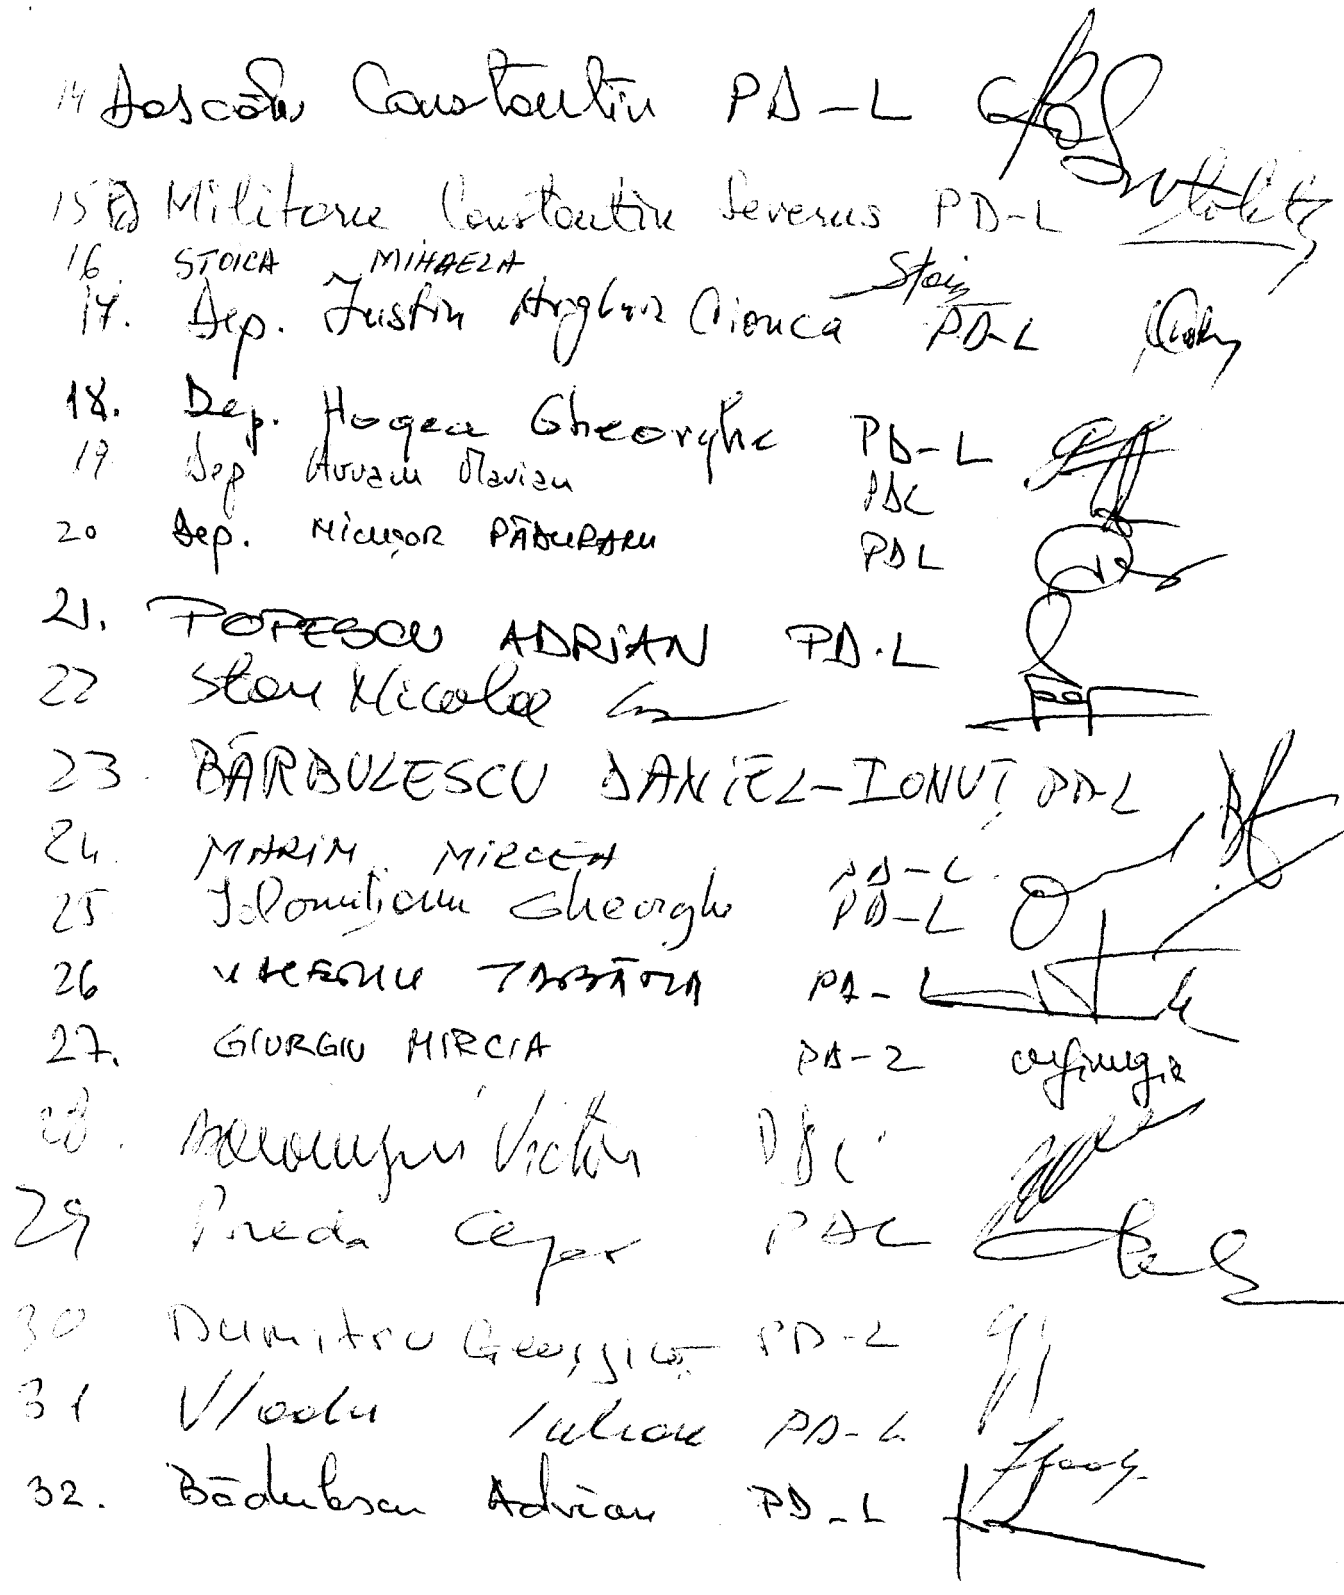 14 Dascălu Constantin PD-L
15 Militaru Constantin Severus PD-L
16 STOICA MIHAELA
17. Dep. Iustin Cionca PD-L
18. Dep. Hogea Gheorghe PD-L
19 Dep Avram Marian PDL
20 Dep. NICUȘOR PĂDURARU PDL
21. POPESCU ADRIAN PD.L
22 Stan Nicolae
23. BĂRBULESCU DANIEL-IONUȚ PD-L
24. MARIN MIRCEA PD-L
25 Ialomițianu Gheorghe PD-L
26 VALERIU TABĂRĂ PD-L
27. GIURGIU MIRCIA PD-L
28. Victor PDL
29 Preda Cezar PDL
30 Dumitru PD-L
31 Vladu Iulian PD-L
32. Bădulescu Adrian PD-L